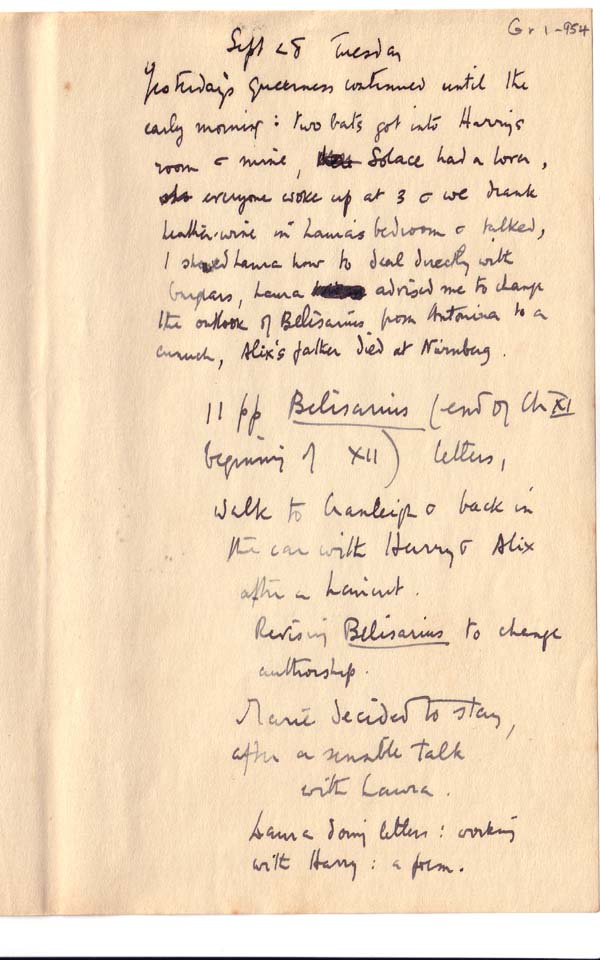 Gr 1-954
Sept 28 Tuesday
Yesterday's queerness continued until the
early morning: two bats got into Harry's
room & mine, Solace had a lover,
everyone woke up at 3 & we drank
heather-wine in Laura's bedroom & talked,
I showed Laura how to deal directly with
burglars, Laura advised me to change
the outlook of Belisarius from Antonina to a
eunuch, Alix's father died at Nürnberg.
11 pp Belisarius (end of Ch XI
beginning of XII) letters,
Walk to Cranleigh & back in
the car with Harry & Alix
after a haircut.
Revising Belisarius to change
authorship.
Marie decided to stay,
after a sensible talk
with Laura.
Laura doing letters: working
with Harry: a poem.